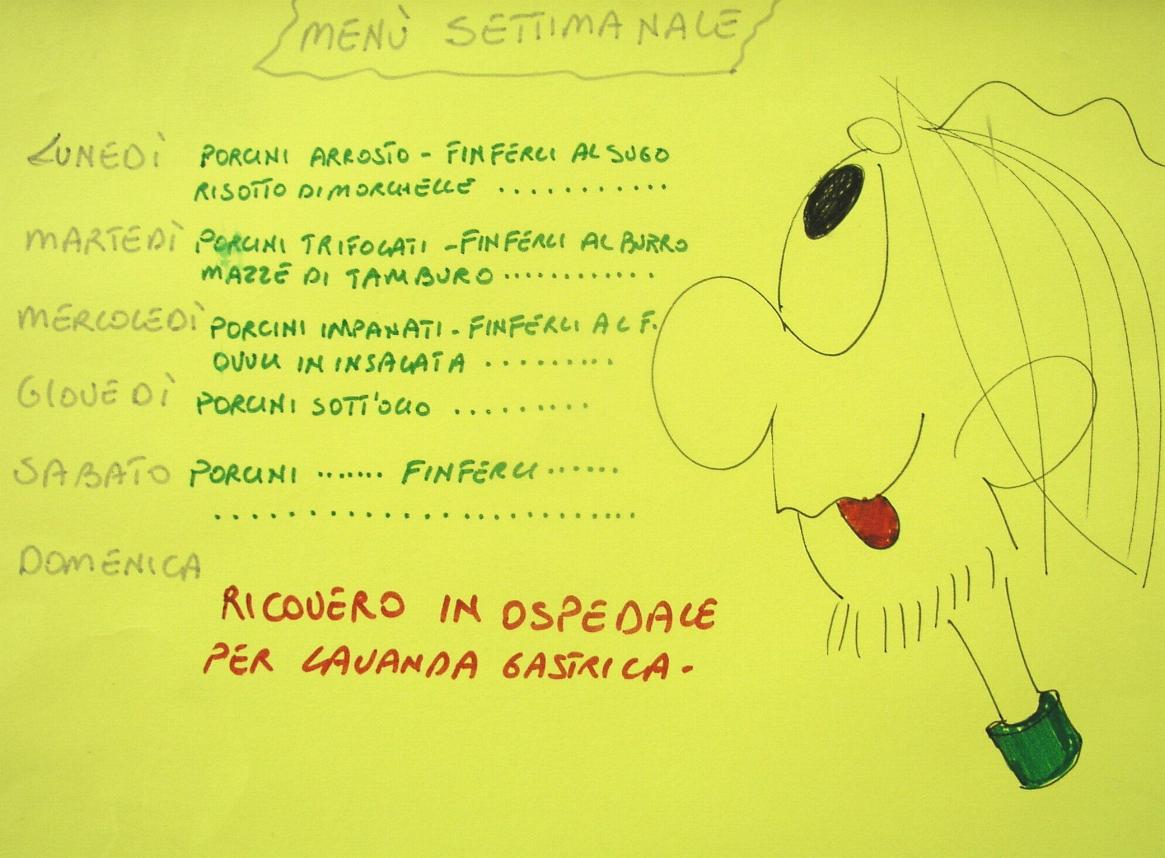 MENÙ SETTIMANALE
LUNEDÌ PORCINI ARROSTO - FINFERLI AL SUGO
RISOTTO DI MORCHELLE ............
MARTEDÌ PORCINI TRIFOLATI - FINFERLI AL BURRO
MAZZE DI TAMBURO ............
MERCOLEDÌ PORCINI IMPANATI - FINFERLI AL F.
OVULI IN INSALATA ..........
GIOVEDÌ PORCINI SOTT'OLIO ..........
SABATO PORCINI ....... FINFERLI ......
..........................
DOMENICA
RICOVERO IN OSPEDALE
PER LAVANDA GASTRICA.